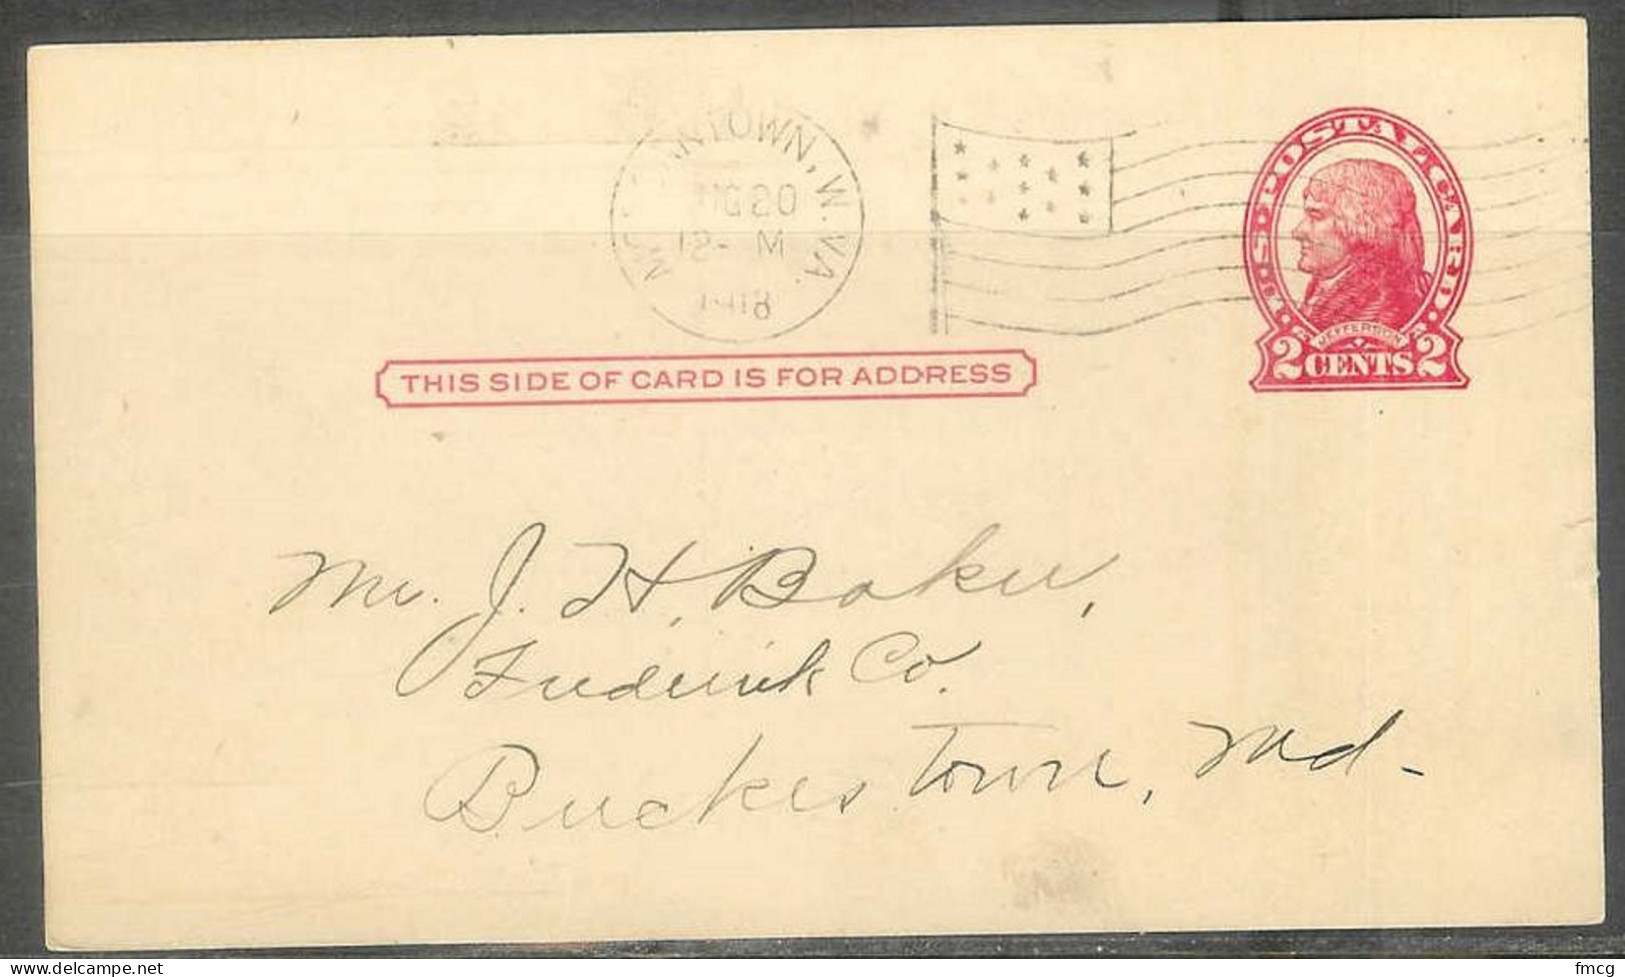 MORGANTOWN, W. VA.
AUG 20
12- M
1918
U.S. POSTAL CARD
JEFFERSON
2 CENTS 2
THIS SIDE OF CARD IS FOR ADDRESS
Mr. J. H. Baker,
Frederick Co.
Buckeystown, Md.
fmcg